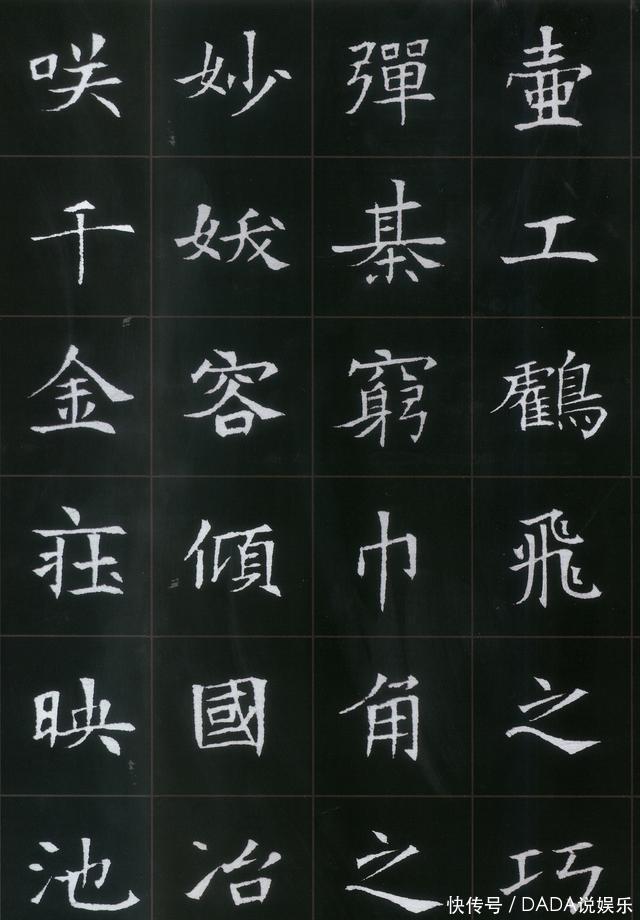 壷工鸖飛之巧
彈棊窮巾角之
妙妓容傾國冶
咲千金莊映池
快传号/DADA说娱乐